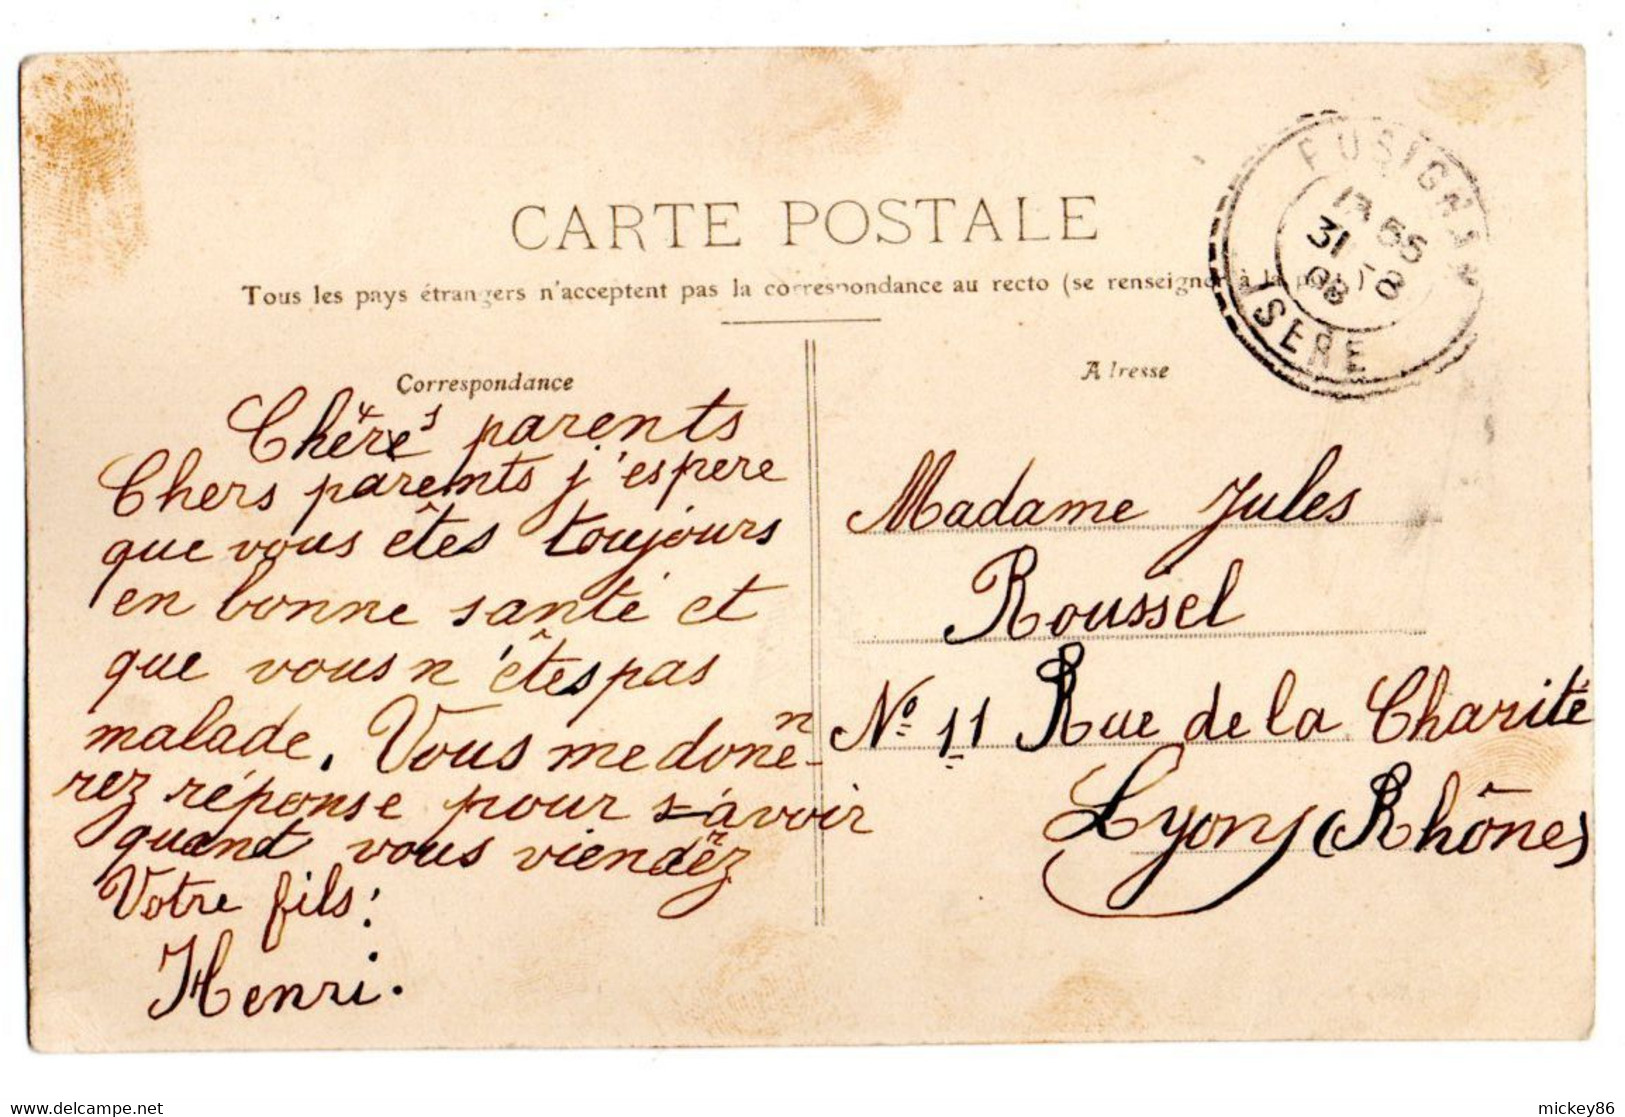 CARTE POSTALE
Tous les pays étrangers n'acceptent pas la correspondance au recto (se renseigner à la poste)
Correspondance
Chères parents
Chers parents j'espere
que vous êtes toujours
en bonne santé et
que vous n'êtes pas
malade. Vous me donne-
rez réponse pour s-avoir
quand vous viendrez
Votre fils:
Henri.
Adresse
Madame Jules
Roussel
No 11 Rue de la Charité
Lyon (Rhône)
31 - 8
08
ISERE
www.delcampe.net
mickey86